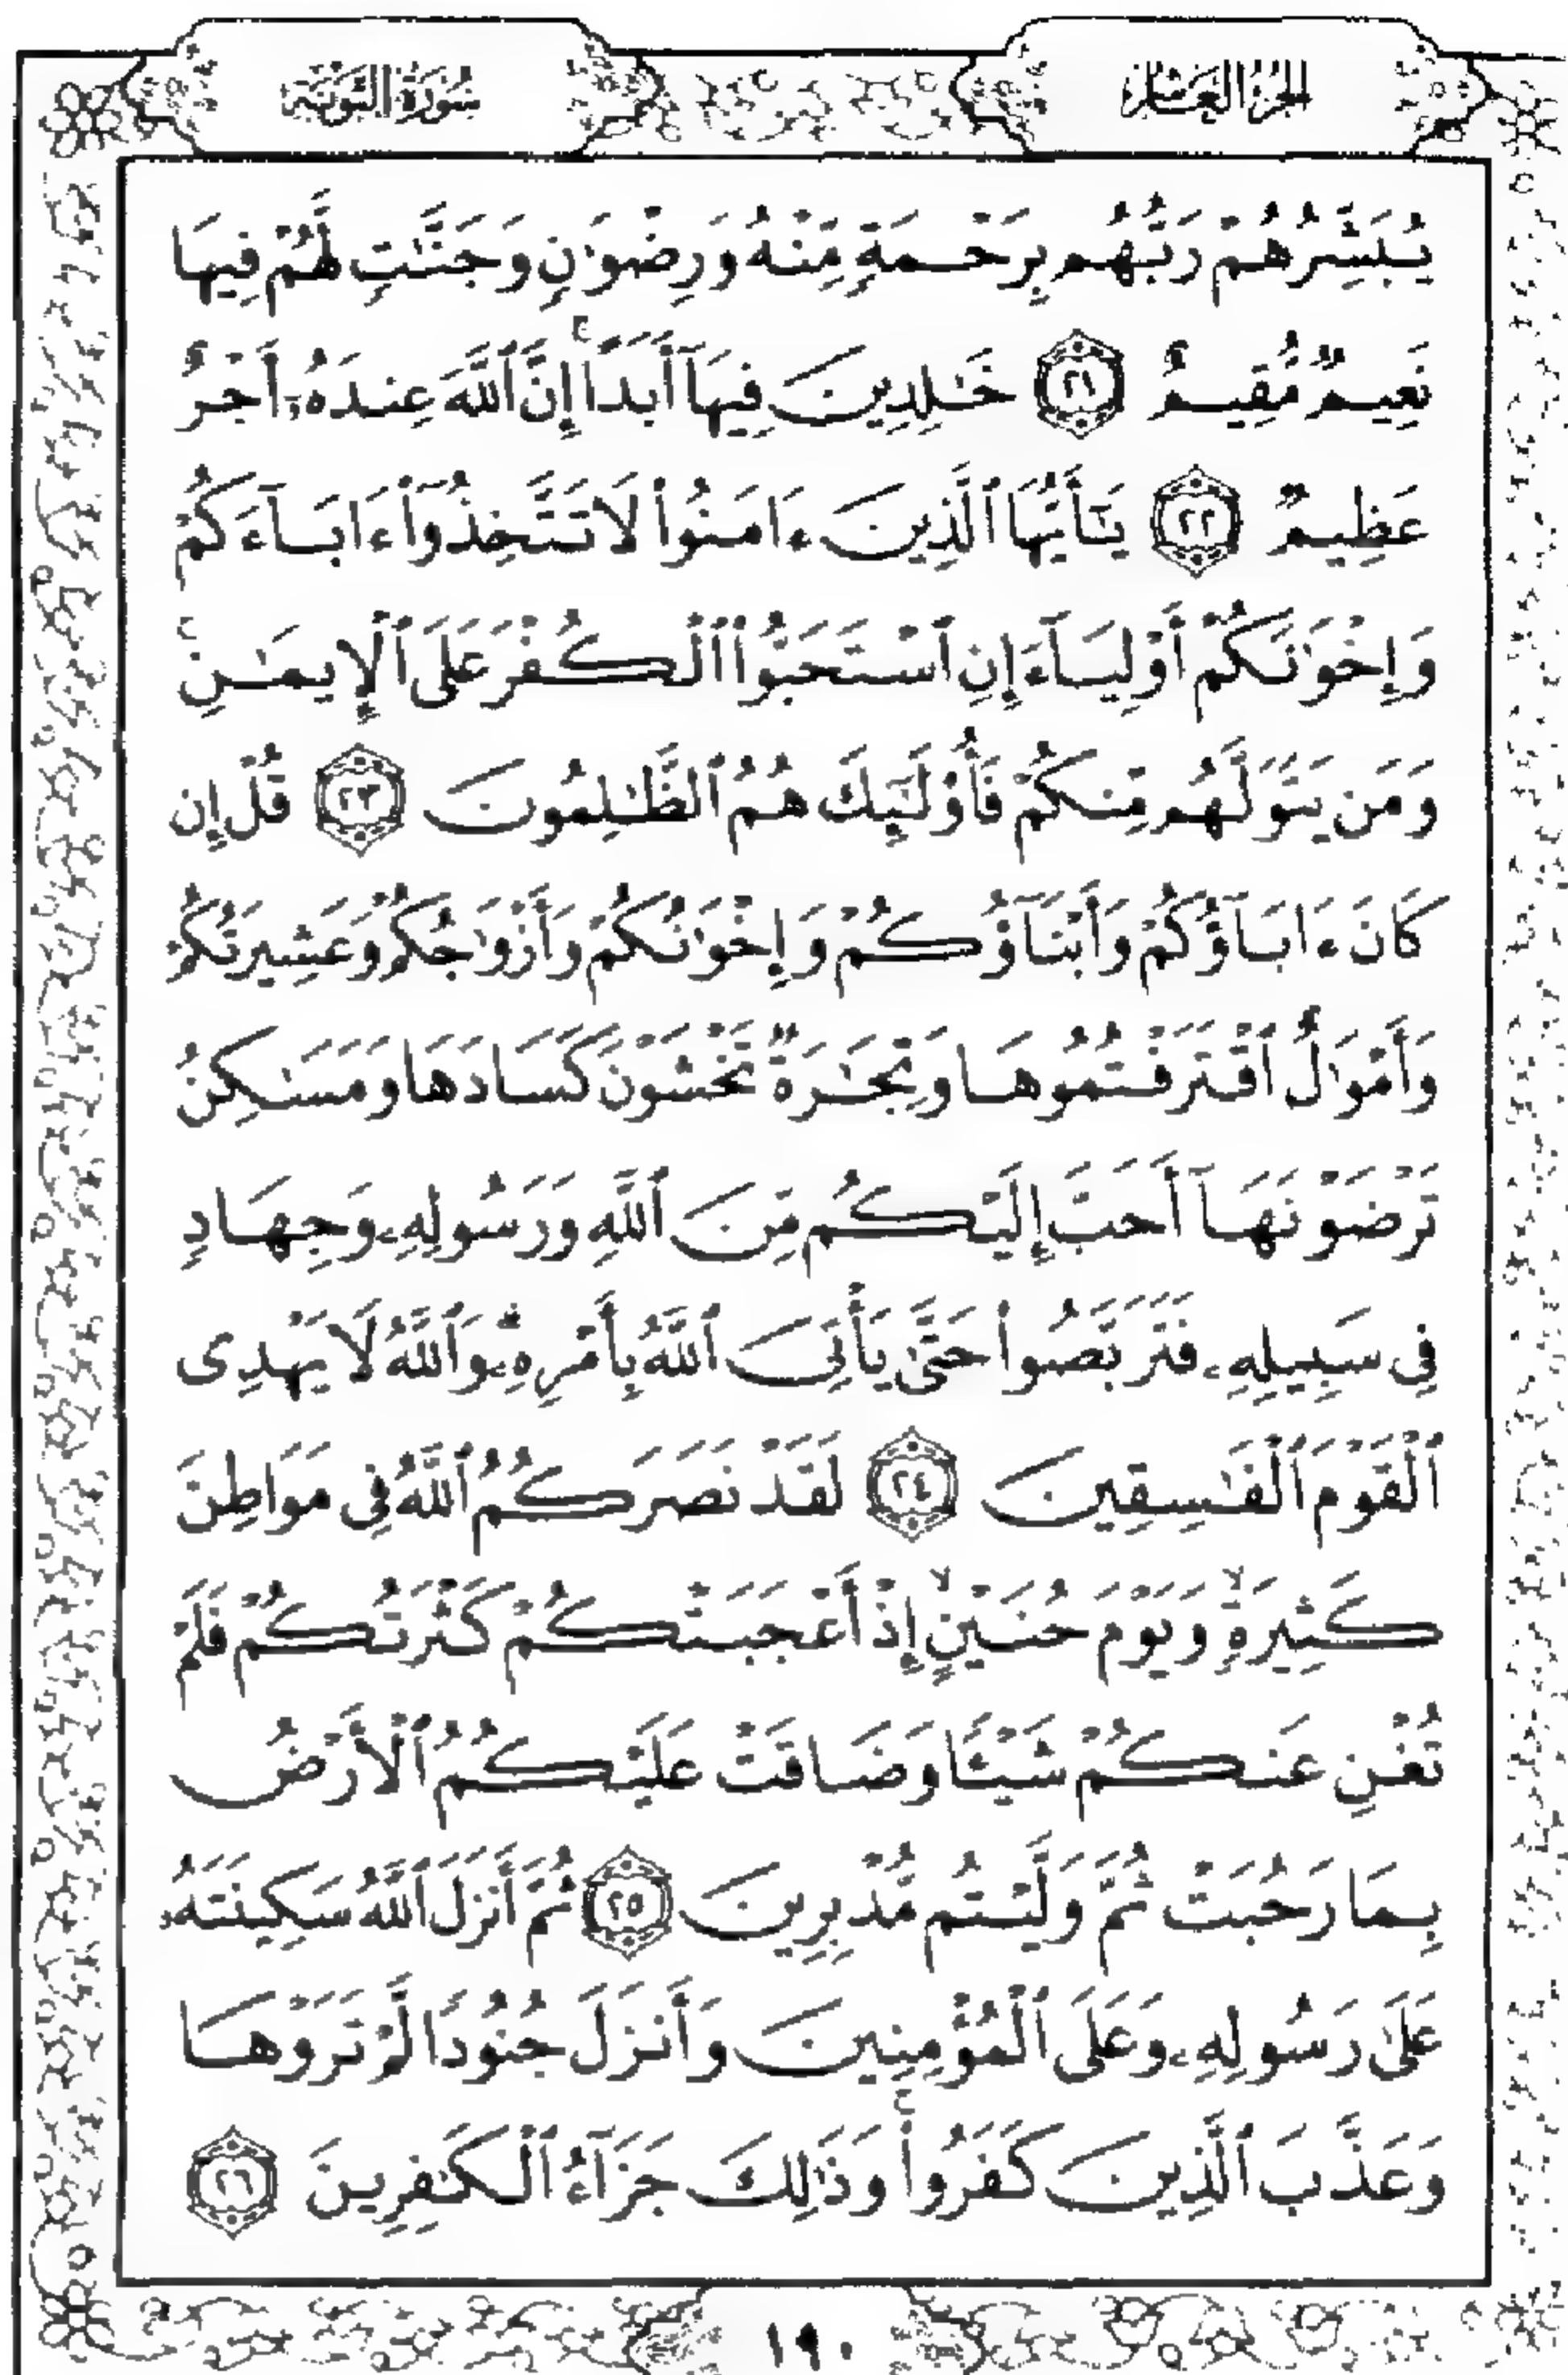 الجزء العاشر
سورة التوبة
يُبَشِّرُهُمْ رَبُّهُم بِرَحْمَةٍ مِّنْهُ وَرِضْوَٰنٍ وَجَنَّـٰتٍ لَّهُمْ فِيهَا
نَعِيمٌ مُّقِيمٌ ٢١ خَـٰلِدِينَ فِيهَآ أَبَدًا ۚ إِنَّ ٱللَّهَ عِندَهُۥٓ أَجْرٌ
عَظِيمٌ ٢٢ يَـٰٓأَيُّهَا ٱلَّذِينَ ءَامَنُوا۟ لَا تَتَّخِذُوٓا۟ ءَابَآءَكُمْ
وَإِخْوَٰنَكُمْ أَوْلِيَآءَ إِنِ ٱسْتَحَبُّوا۟ ٱلْكُفْرَ عَلَى ٱلْإِيمَـٰنِ ۚ
وَمَن يَتَوَلَّهُم مِّنكُمْ فَأُو۟لَـٰٓئِكَ هُمُ ٱلظَّـٰلِمُونَ ٢٣ قُلْ إِن
كَانَ ءَابَآؤُكُمْ وَأَبْنَآؤُكُمْ وَإِخْوَٰنُكُمْ وَأَزْوَٰجُكُمْ وَعَشِيرَتُكُمْ
وَأَمْوَٰلٌ ٱقْتَرَفْتُمُوهَا وَتِجَـٰرَةٌ تَخْشَوْنَ كَسَادَهَا وَمَسَـٰكِنُ
تَرْضَوْنَهَآ أَحَبَّ إِلَيْكُم مِّنَ ٱللَّهِ وَرَسُولِهِۦ وَجِهَادٍ
فِى سَبِيلِهِۦ فَتَرَبَّصُوا۟ حَتَّىٰ يَأْتِىَ ٱللَّهُ بِأَمْرِهِۦ ۗ وَٱللَّهُ لَا يَهْدِى
ٱلْقَوْمَ ٱلْفَـٰسِقِينَ ٢٤ لَقَدْ نَصَرَكُمُ ٱللَّهُ فِى مَوَاطِنَ
كَثِيرَةٍ ۙ وَيَوْمَ حُنَيْنٍ ۙ إِذْ أَعْجَبَتْكُمْ كَثْرَتُكُمْ فَلَمْ
تُغْنِ عَنكُمْ شَيْـًٔا وَضَاقَتْ عَلَيْكُمُ ٱلْأَرْضُ
بِمَا رَحُبَتْ ثُمَّ وَلَّيْتُم مُّدْبِرِينَ ٢٥ ثُمَّ أَنزَلَ ٱللَّهُ سَكِينَتَهُۥ
عَلَىٰ رَسُولِهِۦ وَعَلَى ٱلْمُؤْمِنِينَ وَأَنزَلَ جُنُودًا لَّمْ تَرَوْهَا
وَعَذَّبَ ٱلَّذِينَ كَفَرُوا۟ ۚ وَذَٰلِكَ جَزَآءُ ٱلْكَـٰفِرِينَ ٢٦
١٩٠